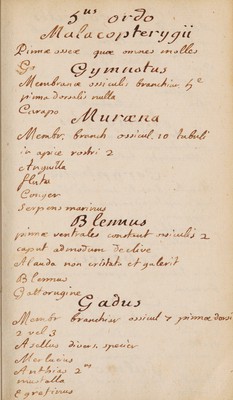 5us ordo
Malacopterygii
Pinnæ osseæ quæ omnes molles
Go Gymnotus
Membranæ ossiculis branchiar. 5e
pinna dorsalis nulla
Carapo
Muræna
Membr. branch ossicul. 10 tubuli
in apice rostri 2
Anguilla
fluta
Conger
Serpens marinus
Blennus
pinnæ ventrales constant osiculis 2
caput admodum declive
Alauda non cristata et galerit
Blennus
Gattorugine
Gadus
Membr branchiar ossicul 7 pinnæ dorsi
2 vel 3
Asellus divers. specier
Merlucius
Anthias 2us
mustella
Egrefinus